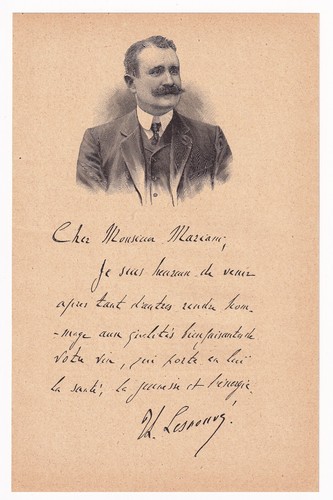 Cher Monsieur Mariani,
Je suis heureux de venir
après tant d'autres rendre hom-
-mage aux qualités bienfaisantes de
votre vin, qui porte en lui
la santé, la jeunesse et l'énergie.